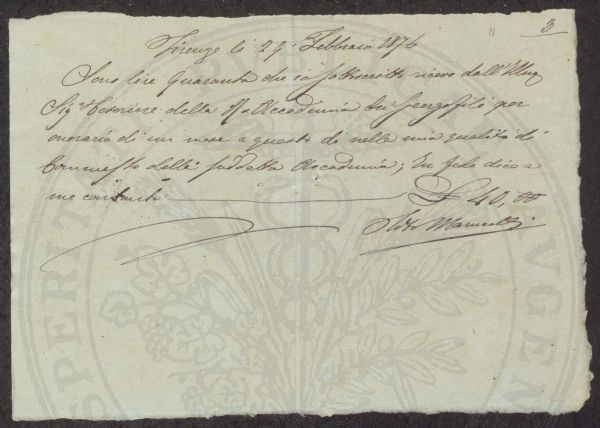 8 3
Firenze li 29 Febbraio 1876
Sono lire quaranta che io sottoscritto ricevo dall'Illmo
Sig Tesoriere della R. Accademia dei Georgofili per
onorario di un mese a questo dì nella mia qualità di
Commesso della suddetta Accademia; In fede dico a
me contanti £ 40,00
PROSPERITÀ